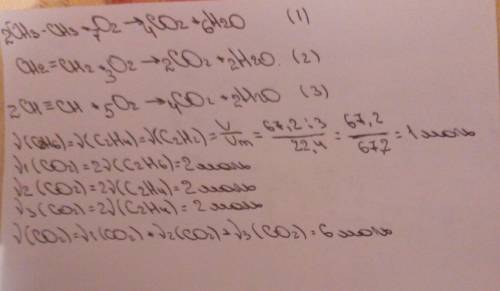 2CH3-CH3+7O2→4CO2+6H2O (1)
CH2=CH2+3O2→2CO2+2H2O. (2)
2CH≡CH+5O2→4CO2+2H2O (3)
ν(C2H6)=ν(C2H4)=ν(C2H2)=V/Vm=67,2:3/22,4=67,2/67,2=1моль
ν1(CO2)=2ν(C2H6)=2моль
ν2(CO2)=2ν(C2H4)=2моль
ν3(CO2)=2ν(C2H4)=2 моль
ν(CO2)=ν1(CO2)+ν2(CO2)+ν3(CO2)=6моль